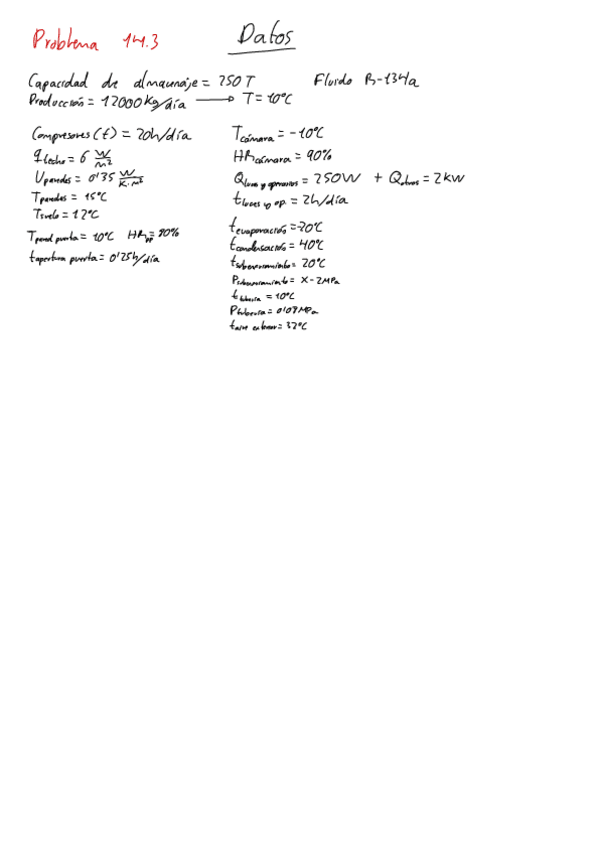 Problema 14.3
Datos
Capacidad de almacenaje = 250 T
Fluido R-134a
Producción = 12000 kg/día → T = 10°C
Compresores (t) = 20h/día
q techo = 6 W/m²
U paredes = 0'35 W/K·m²
T paredes = 15°C
T suelo = 12°C
T pared puerta = 10°C HR pp = 80%
t apertura puerta = 0'25h/día
T cámara = -10°C
HR cámara = 90%
Q luces y operarios = 250W + Q otros = 2kW
t luces y op. = 2h/día
t evaporación = -20°C
t condensación = 40°C
t subenfriamiento = 20°C
P subenfriamiento = x - 2MPa
t tubería = 10°C
P tubería = 0'08MPa
t aire exterior = 32°C